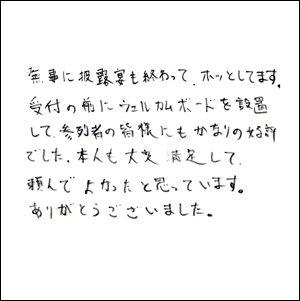 無事に披露宴も終わって、ホッとしてます。
受付の前にウェルカムボードを設置
して、参列者の皆様にもかなりの好評
でした。本人も大変満足して、
頼んでよかったと思っています。
ありがとうございました。